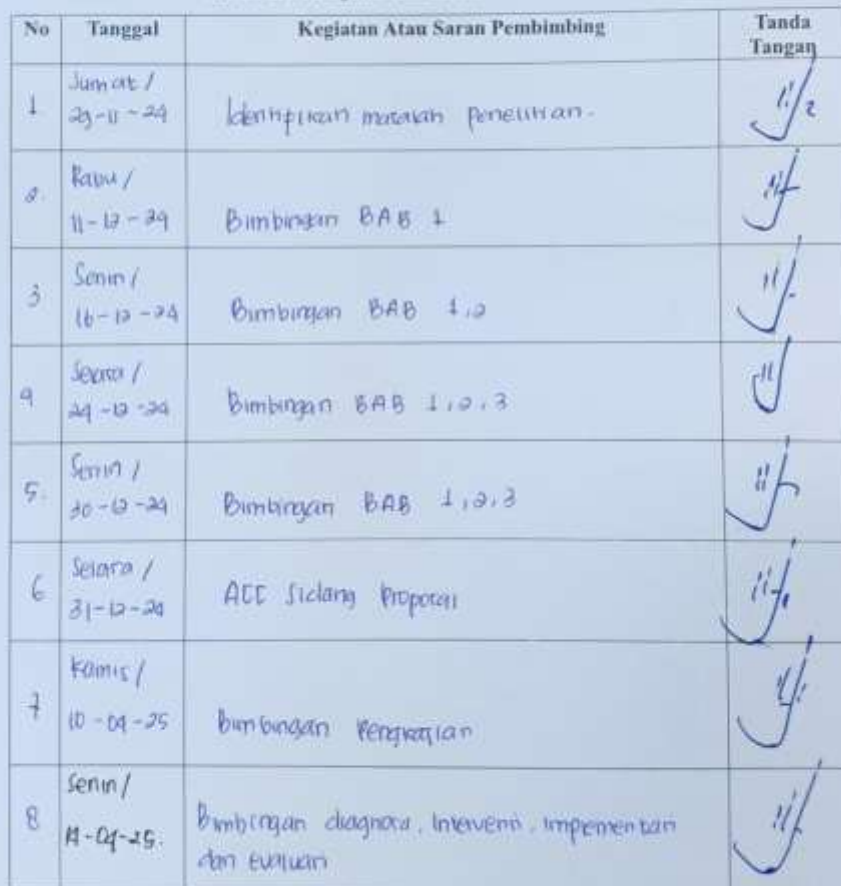 No Tanggal Kegiatan Atau Saran Pembimbing Tanda Tangan
1 Jumat /
29-11-24 Identifikasi masalah penelitian.
2. Rabu /
11-12-24 Bimbingan BAB 1
3 Senin /
16-12-24 Bimbingan BAB 1,2
4 Selasa /
24-12-24 Bimbingan BAB 1,2,3
5. Senin /
30-12-24 Bimbingan BAB 1,2,3
6 Selasa /
31-12-24 ACC Sidang Proposal
7 Kamis /
10-04-25 Bimbingan Pengkajian
8 Senin /
14-04-25. Bimbingan diagnosa, Intervensi, Implementasi
dan evaluasi